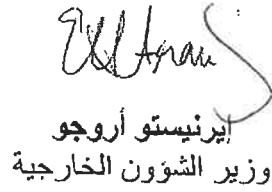 إيرنيستو أروجو
وزير الشؤون الخارجية